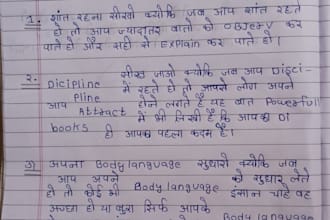 1. शांत रहना सीखो क्योंकि जब आप शांत रहते
हो तो आप ज्यादातर बातो को OBJerv कर
पाते हो और सही से Explain कर पाते हो।
2. सीख जाओ क्योंकि जब आप Disci-
Dicipline में रहते हो तो आपसे लोग अपने
pline
आप Attract होने लगते है यह बात Powerfull
books में भी लिखी है कि आपका DI
ही आपका पहला कदम है।
3) अपना Body language सुधारो क्योंकि जब
आप अपने को सुधार लेते
हो तो कोई भी Body language इंसान चाहे वह
अच्छा हो या बुरा सिर्फ आपके